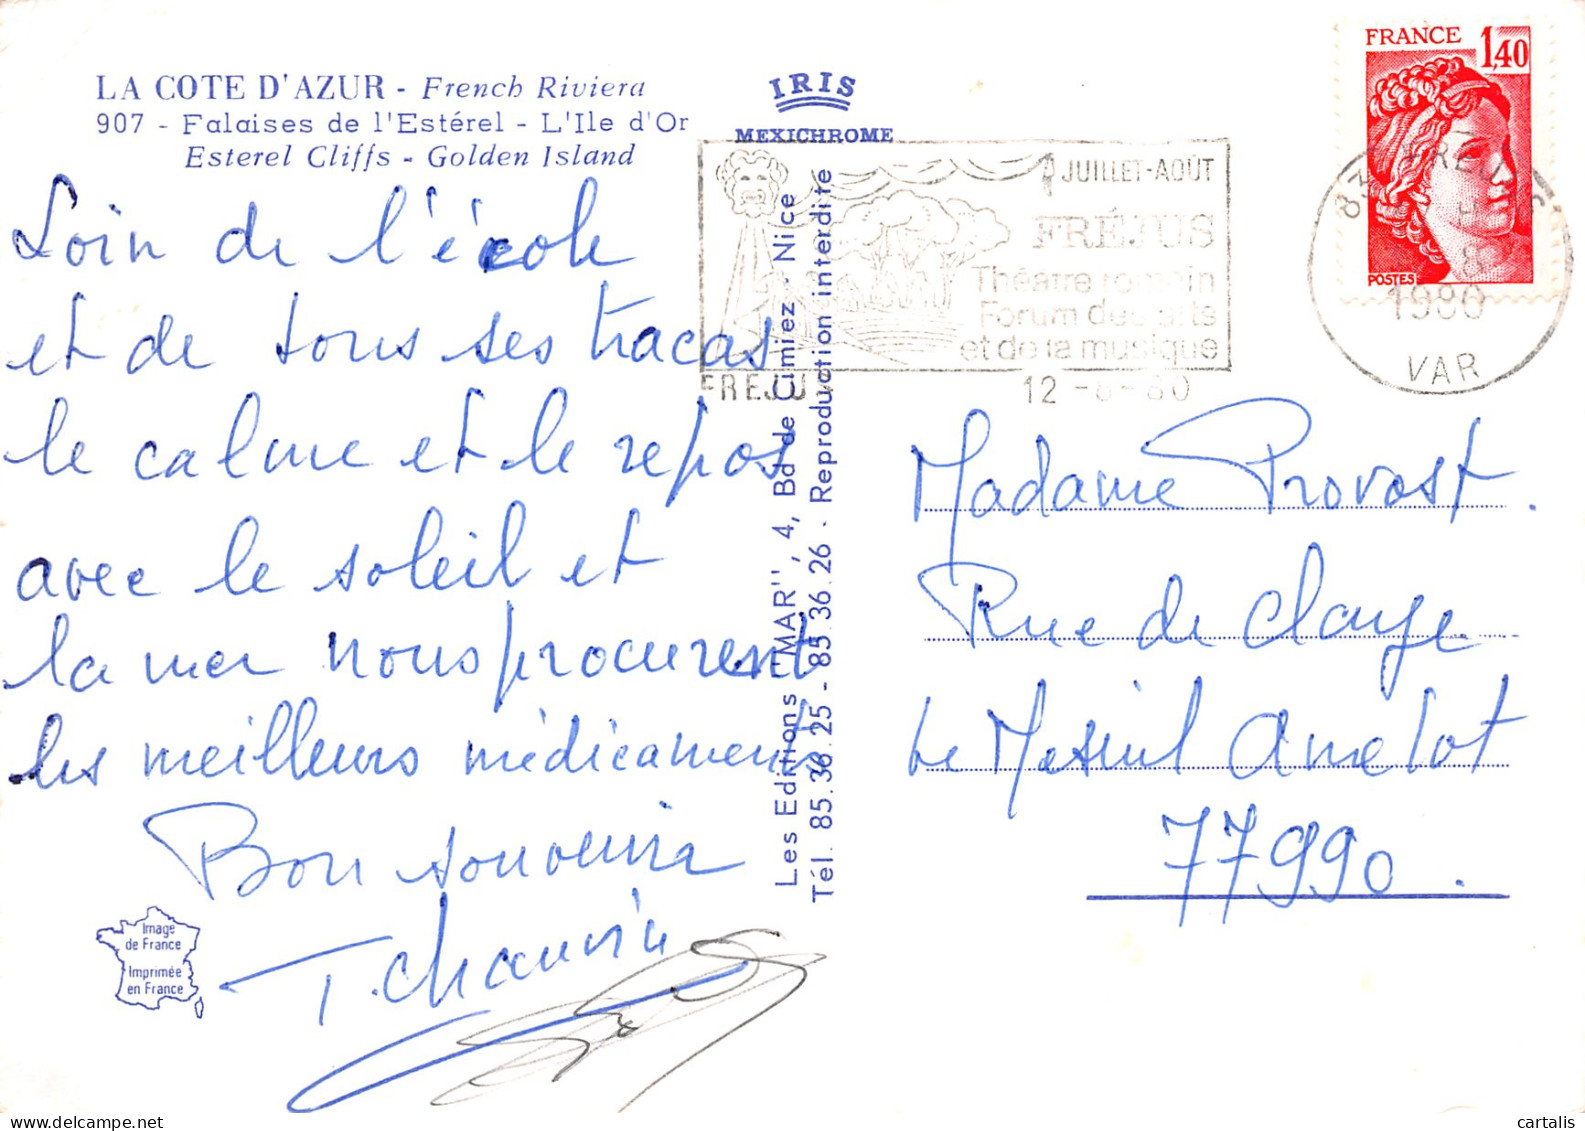 LA COTE D'AZUR - French Riviera
907 - Falaises de l'Estérel - L'Ile d'Or
Esterel Cliffs - Golden Island
IRIS
MEXICHROME
Loin de l'école
et de tous ses tracas
le calme et le repos
avec le soleil et
la mer nous procurent
les meilleurs médicaments
Bon souvenir
T. chauvin
Image
de France
Imprimée
en France
Les Editions "MAR", 4, Bd de Cimiez - Nice
Tél. 85.36.25 - 85.36.26 - Reproduction interdite
JUILLET-AOÛT
FRÉJUS
Théatre romain
Forum des arts
et de la musique
FREJUS
12 -8-80
FRANCE 1,40
POSTES
1980
VAR
Madame Provost.
Rue de Claye
Le Mesnil Amelot
77990.
www.delcampe.net
cartalis